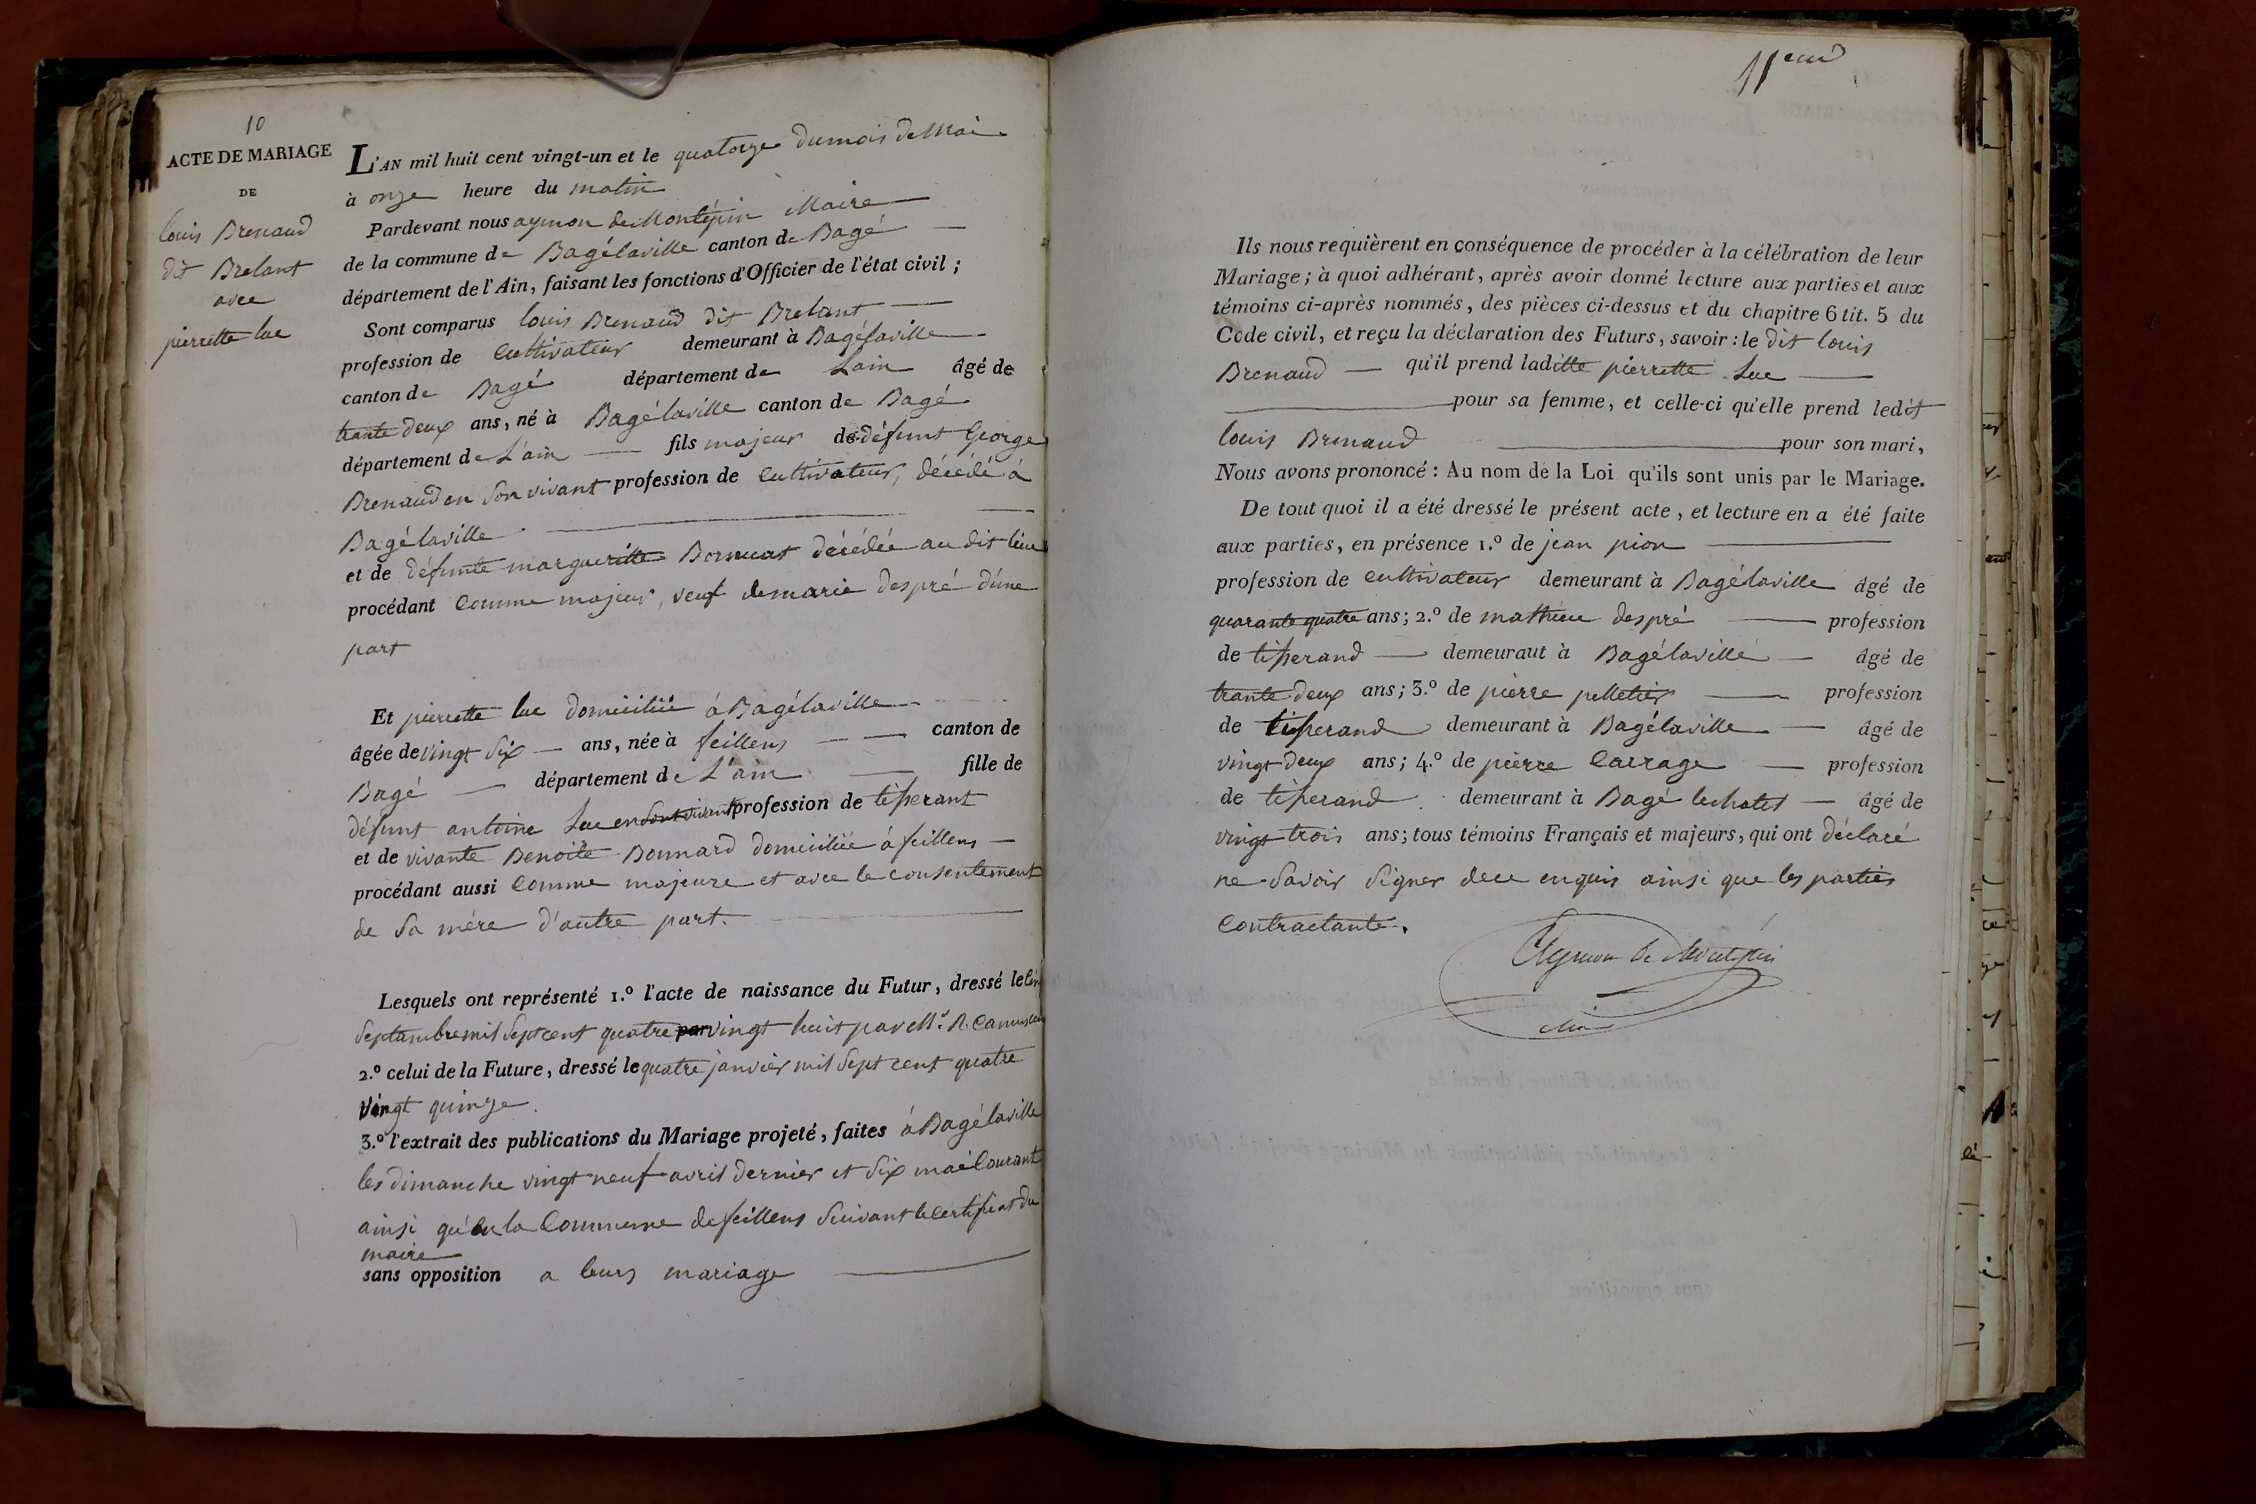 10
ACTE DE MARIAGE
DE
louis Brenaud
dit Brelant
avec
pierrette luc
L'AN mil huit cent vingt-un et le quatorze du mois de Mai
à onze heure du matin
Pardevant nous aymon de Montépin Maire
de la commune de Bagélaville canton de Bagé
département de l'Ain, faisant les fonctions d'Officier de l'état civil ;
Sont comparus louis Brenaud dit Brelant
profession de Cultivateur demeurant à Bagélaville
canton de Bagé département de Lain âgé de
trante deux ans, né à Bagélaville canton de Bagé
département de L'ain fils majeur de défunt George
Brenaud en son vivant profession de Cultivateur, décédé à
Bagélaville
et de défunte margueritte décédée au dit lieu
procédant Comme majeur, veuf de marie despré d'une
part
Et pierrette luc domiciliée à Bagélaville
âgée de vingt six ans, née à feillens canton de
Bagé département de L'ain fille de
défunt antoine Luc en son vivant profession de tisserant
et de vivante Benoite Bonnard domiciliée à feillens
procédant aussi Comme majeure et avec le consentement
de sa mére d'autre part.
Lesquels ont représenté 1.º l'acte de naissance du Futur, dressé le
Septambre mil sept cent quatre vingt huit par Mr. R.
2.º celui de la Future, dressé le quatre janvier mil sept cent quatre
vingt quinze
3.º l'extrait des publications du Mariage projeté, faites à Bagélaville
les dimanche vingt neuf avril dernier et six mai Courant
ainsi qu'en la Commune de feillens suivant le certificat du
maire
sans opposition a leurs mariage
11eme
Ils nous requièrent en conséquence de procéder à la célébration de leur
Mariage ; à quoi adhérant, après avoir donné lecture aux parties et aux
témoins ci-après nommés, des pièces ci-dessus et du chapitre 6 tit. 5 du
Code civil, et reçu la déclaration des Futurs, savoir : le dit louis
Brenaud qu'il prend laditte pierrette Luc
pour sa femme, et celle-ci qu'elle prend ledit
louis Brenaud pour son mari,
Nous avons prononcé : Au nom de la Loi qu'ils sont unis par le Mariage.
De tout quoi il a été dressé le présent acte, et lecture en a été faite
aux parties, en présence 1.º de jean pion
profession de cultivateur demeurant à Bagélaville âgé de
quarante quatre ans ; 2.º de mathieu despré profession
de tisserand demeuraut à Bagélaville âgé de
trante deux ans ; 3.º de pierre pelletier profession
de tisserand demeurant à Bagélaville âgé de
vingt deux ans ; 4.º de pierre Carrage profession
de tisserand demeurant à Bagé lechatel âgé de
vingt trois ans ; tous témoins Français et majeurs, qui ont déclaré
ne savoir signer de ce enquis ainsi que les parties
contractante.
Aymon de Montépin